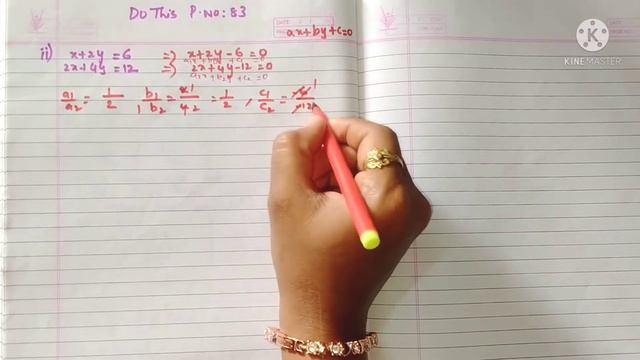 Do This P.No: 83
ax+by+c=0
ii) x+2y=6 ⇒ x+2y-6=0
2x+4y=12 ⇒ 2x+4y-12=0
a₂x+b₂y+c₂=0
a₁/a₂ = 1/2, b₁/b₂ = 2/4 = 1/2, c₁/c₂ = -6/-12
K
KINEMASTER